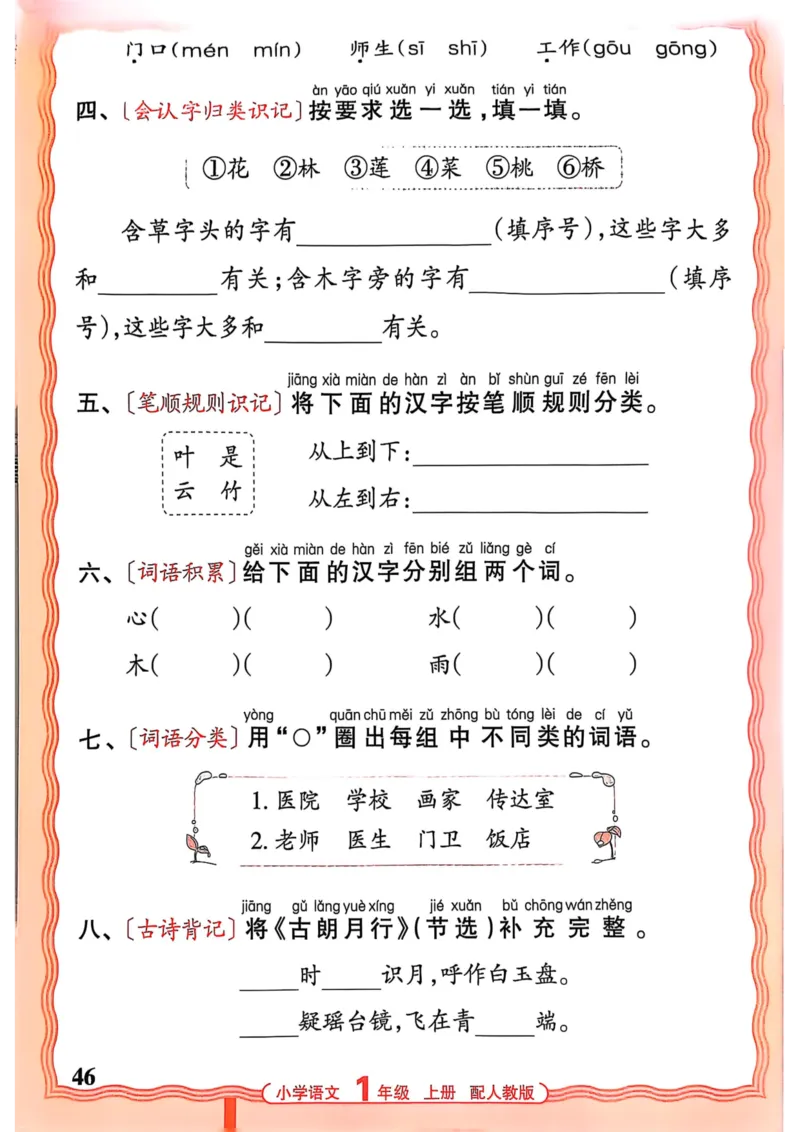 门口(mén mín) 师生(sī shī) 工作(gōu gōng)
àn yāo qiú xuǎn yi xuǎn tián yi tián
四、〔会认字归类识记〕按要求选一选,填一填。
①花 ②林 ③莲 ④菜 ⑤桃 ⑥桥
含草字头的字有____________(填序号),这些字大多
和________有关;含木字旁的字有____________(填序
号),这些字大多和________有关。
jiāng xià miàn de hàn zì àn bǐ shùn guī zé fēn lèi
五、〔笔顺规则识记〕将下面的汉字按笔顺规则分类。
叶 是 从上到下:________________
云 竹 从左到右:________________
gěi xià miàn de hàn zì fēn bié zǔ liǎng gè cí
六、〔词语积累〕给下面的汉字分别组两个词。
心( )( ) 水( )( )
木( )( ) 雨( )( )
yòng quān chū měi zǔ zhōng bù tóng lèi de cí yǔ
七、〔词语分类〕用“○”圈出每组中不同类的词语。
1. 医院 学校 画家 传达室
2. 老师 医生 门卫 饭店
jiāng gǔ lǎng yuè xíng jié xuǎn bǔ chōng wán zhěng
八、〔古诗背记〕将《古朗月行》(节选)补充完整。
____时____识月,呼作白玉盘。
____疑瑶台镜,飞在青____端。
46
小学语文 1年级 上册 配人教版